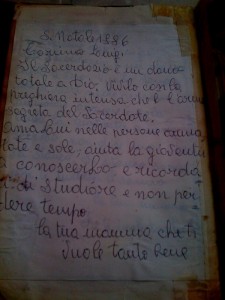 S. Natale 1986
Il Sacerdozio è un dono
totale a Dio; vivilo con la
preghiera intensa che è l'arma
segreta del Sacerdote,
ama Lui nelle persone
e sole, aiuta la gioventù
a conoscerlo e ricorda
di studiare e non per
dere tempo
la tua mamma che ti
vuole tanto bene